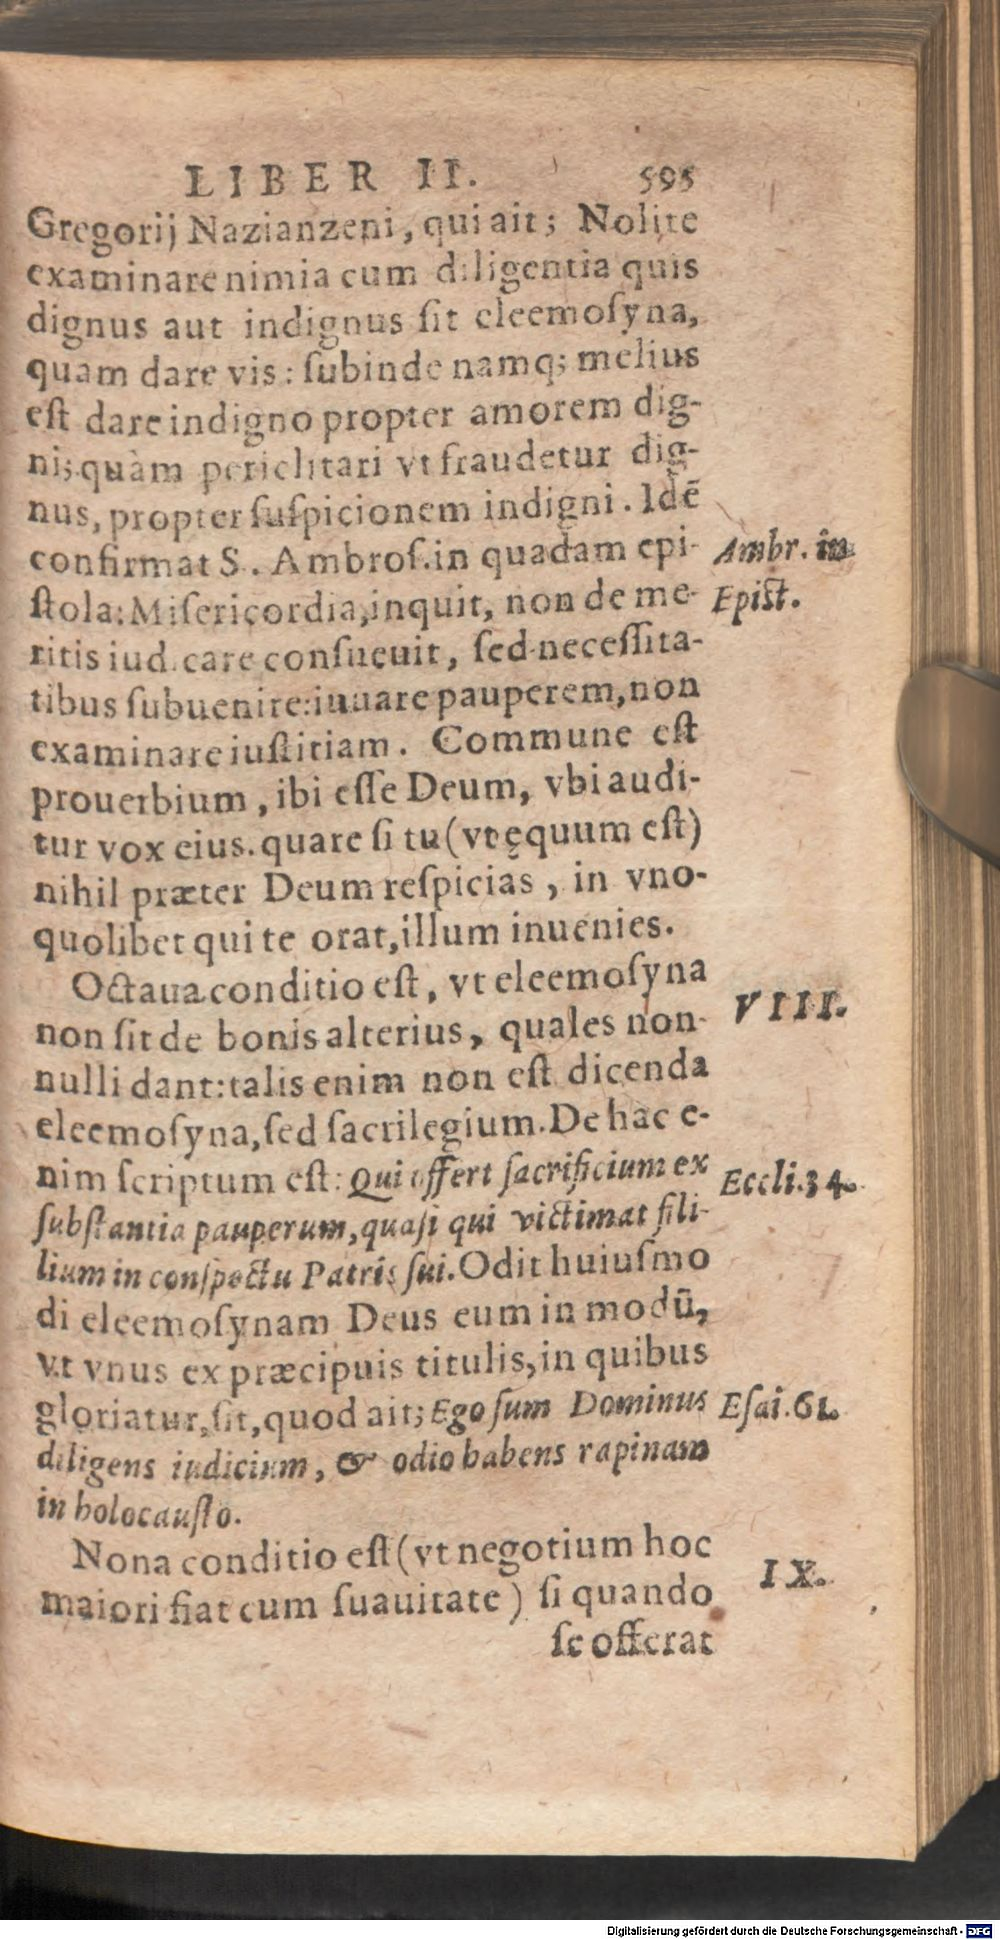 LIBER II. 595
Gregorij Nazianzeni, qui ait; Nolite
examinare nimia cum diligentia quis
dignus aut indignus ſit eleemoſyna,
quam dare vis: ſubinde namq; melius
eſt dare indigno propter amorem dig-
ni; quàm periclitari vt fraudetur dig-
nus, propter ſuſpicionem indigni. Idē
confirmat S. Ambroſ. in quadam epi-
Ambr. in
ſtola: Miſericordia, inquit, non de me-
Epiſt.
ritis iudicare conſueuit, ſed neceſſita-
tibus ſubuenire: iuuare pauperem, non
examinare iuſtitiam. Commune eſt
prouerbium, ibi eſſe Deum, vbi audi-
tur vox eius. quare ſi tu (vt ęquum eſt)
nihil præter Deum reſpicias, in vno-
quolibet qui te orat, illum inuenies.
Octaua conditio eſt, vt eleemoſyna
VIII.
non ſit de bonis alterius, quales non-
nulli dant: talis enim non eſt dicenda
eleemoſyna, ſed ſacrilegium. De hac e-
nim ſcriptum eſt: Qui offert ſacrificium ex
Eccli. 34.
ſubſtantia pauperum, quaſi qui victimat fili-
lium in conſpectu Patris ſui. Odit huiuſmo
di eleemoſynam Deus eum in modū,
vt vnus ex præcipuis titulis, in quibus
gloriatur, ſit, quod ait; Ego ſum Dominus
Eſai. 61.
diligens iudicium, & odio habens rapinam
in holocauſto.
Nona conditio eſt (vt negotium hoc
IX.
maiori fiat cum ſuauitate) ſi quando
ſe offerat
Digitalisierung gefördert durch die Deutsche Forschungsgemeinschaft - DFG